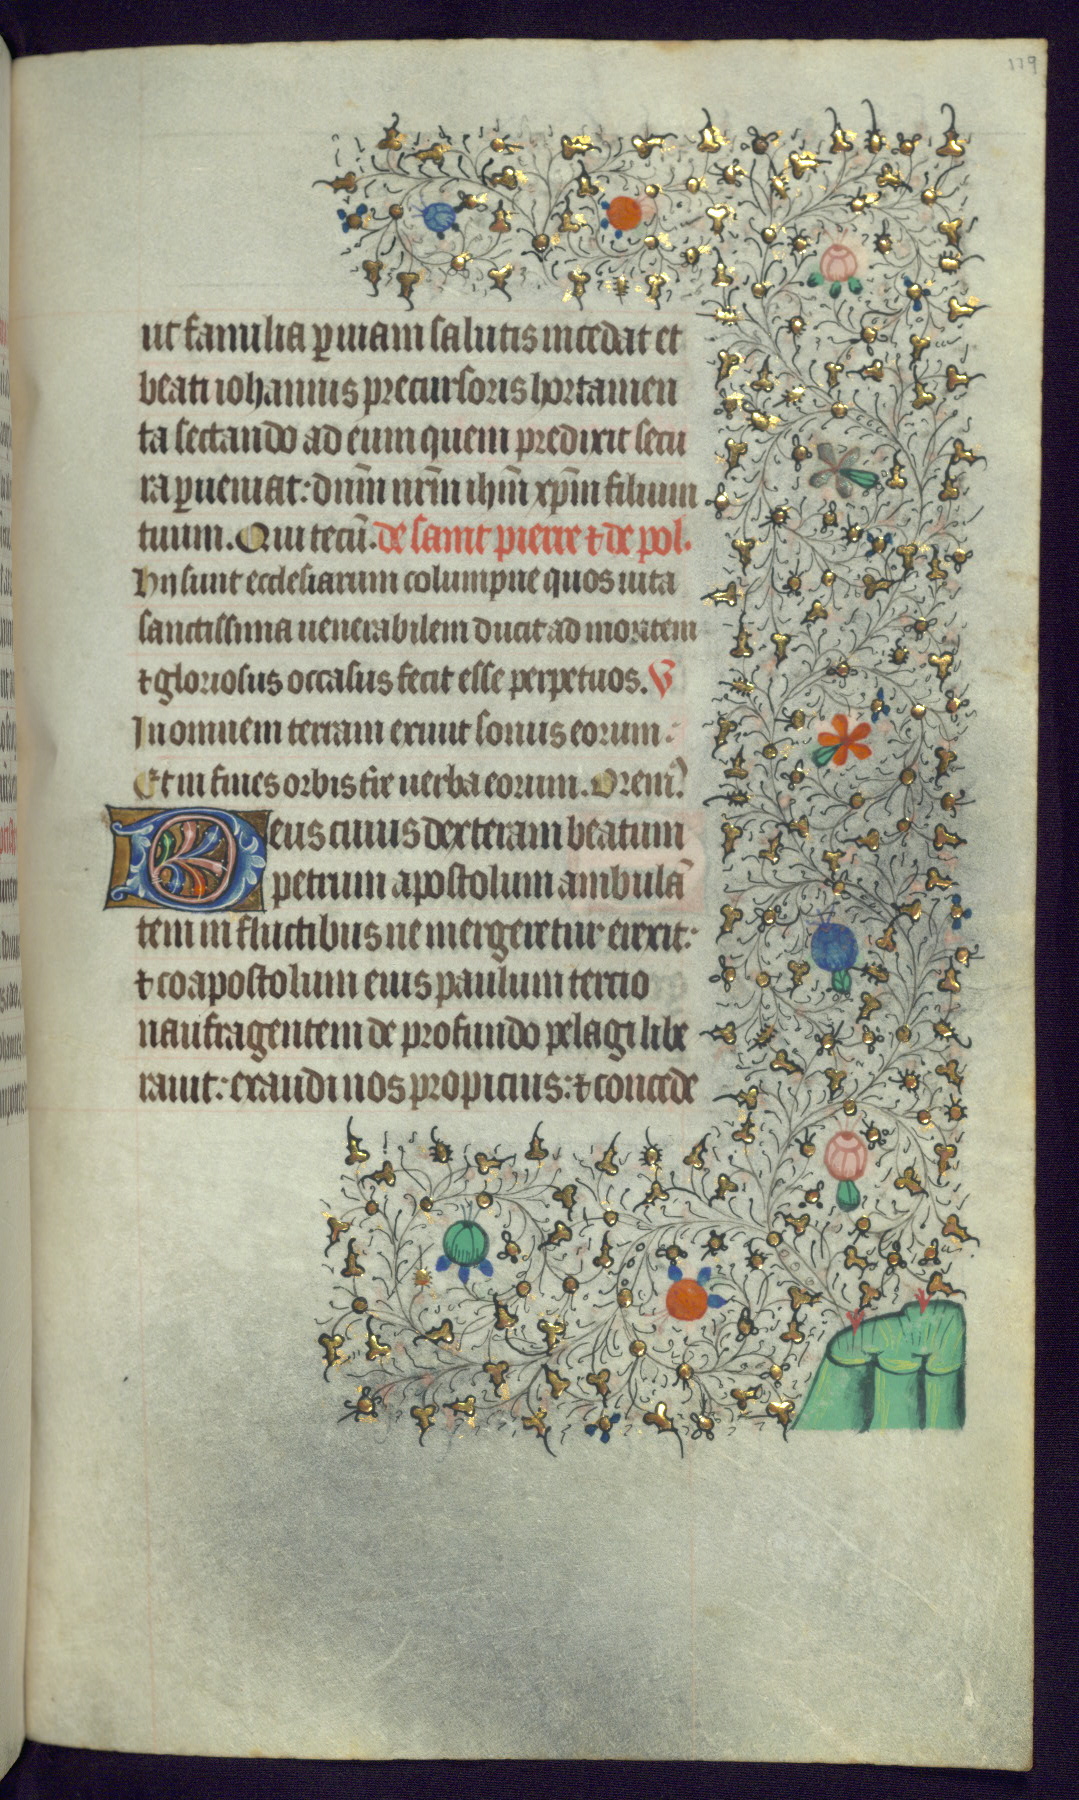 119
ut familia p uiam salutis incedat et
beati iohannis precursoris hortamen
ta sectando ad eum quem predixit secu
ra pueniat: dn̄m nr̄m ihm̄ xp̄m filium
tuum. Qui tecū. de saint pierre ⁊ de pol.
Hii sunt ecclesiarum columpne quos iuta
sanctissima uenerabilem ducit ad mortem
⁊ gloriosus occasus fecit esse perpetuos. V
In omnem terram exiuit sonus eorum :
Et in fines orbis tr̄e uerba eorum. Orem̄
Deus cuius dexteram beatum
petrum apostolum ambulā
tem in fluctibus ne mergeretur erexit:
⁊ coapostolum eius paulum tercio
naufragentem de profundo pelagi libe
rauit: exaudi nos propicius: ⁊ concede